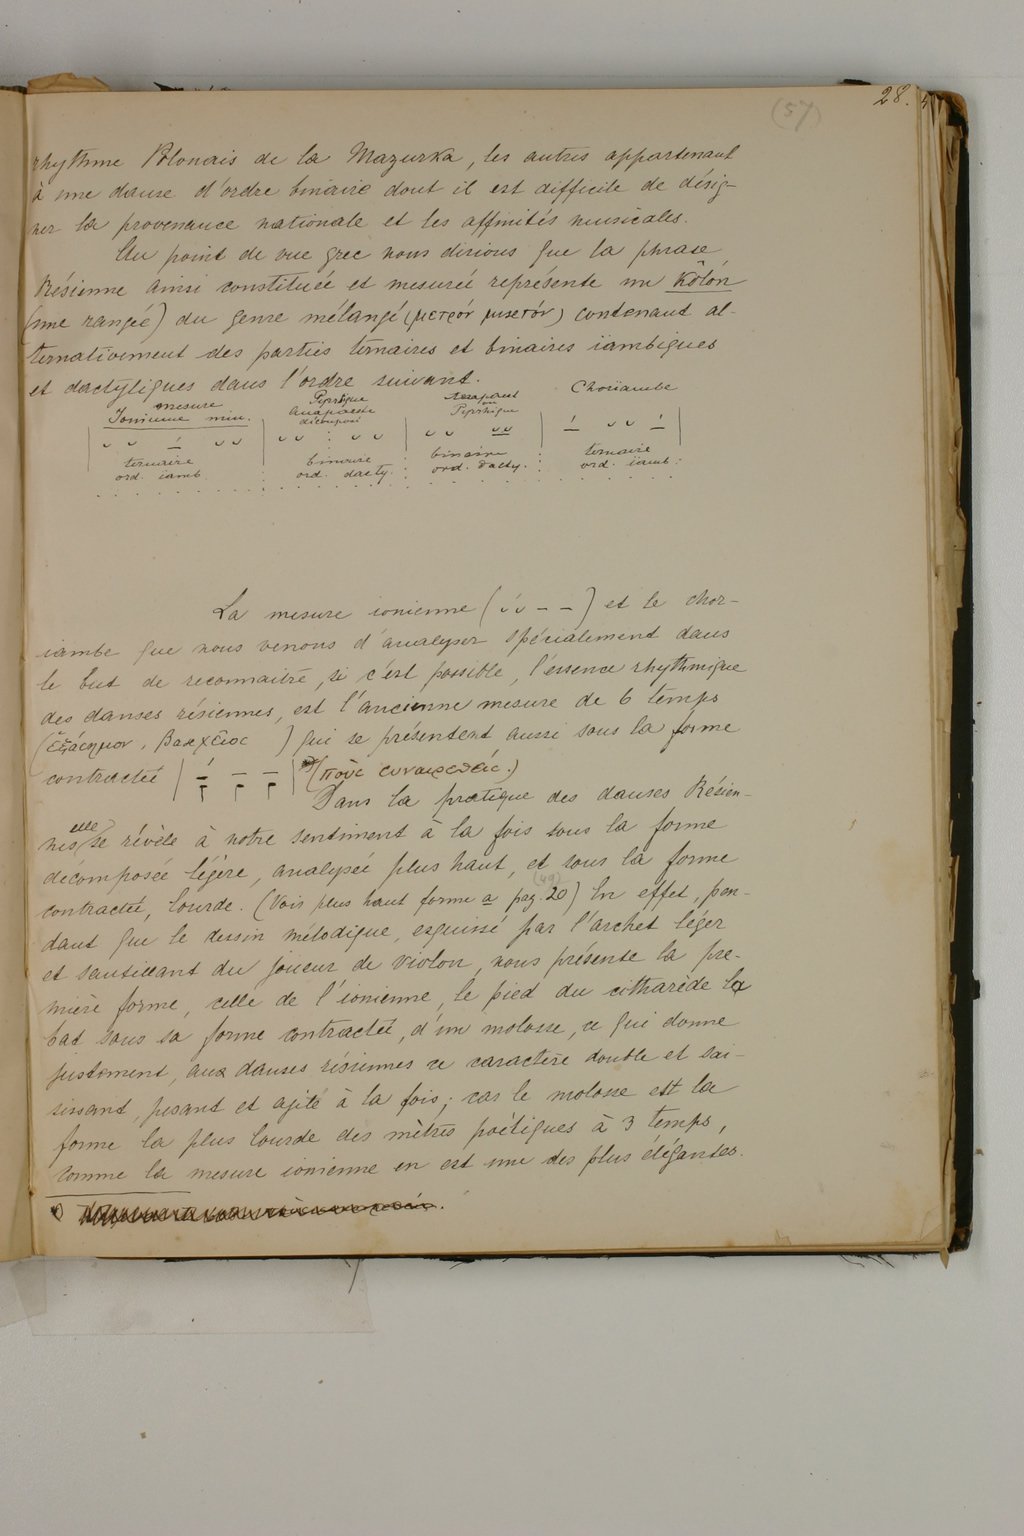 (57)
28.
rhythme Polonais de la Mazurka, les autres appartenant
à une danse d'ordre binaire dont il est difficile de désig-
ner la provenance nationale et les affinités musicales.
Au point de vue grec nous dirions que la phrase
Résienne ainsi constituée et mesurée représente un Kôlón
(une rangée) du genre mélangé (μετρόν μικτόν) contenant al-
ternativement des parties ternaires et binaires iambiques
et dactyliques dans l'ordre suivant.
mesure Ionienne min. | Pyrrhique Anapaeste décomposé | Anapaest ou Pyrrhique | Choriambe
| ᴗ ᴗ –́ ᴗ ᴗ | ᴗ ᴗ : ᴗ ᴗ | ᴗ ᴗ ᴗᴗ | –́ ᴗ ᴗ –́ |
ternaire ord. iamb : binaire ord. dacty. : binaire ord. dacty. : ternaire ord. iamb :
La mesure ionienne (ᴗ́ ᴗ – –) et le chor-
iambe que nous venons d'analyser spécialement dans
le but de reconnaitre, si c'est possible, l'essence rhythmique
des danses résiennes, est l'ancienne mesure de 6 temps
(ἑξάσημον, βακχεῖος ) qui se présentent aussi sous la forme
contractée | –́ – – | (ποὺς συναιρεθείς.)
Dans la pratique des danses Résien-
nes elle se révèle à notre sentiment à la fois sous la forme
décomposée légère, analysée plus haut, et sous la forme
contractée, lourde. (Voir plus haut forme a pag. 20) (49) En effet, pen-
dant que le dessin mélodique, esquissé par l'archet léger
et sautillant du joueur de violon, nous présente la pre-
mière forme, celle de l'ionienne, le pied du citharède la
bat sous sa forme contractée, d'un molosse, ce qui donne
justement, aux danses résiennes ce caractère double et sai-
sissant, pesant et agité à la fois; car le molosse est la
forme la plus lourde des mètres poétiques à 3 temps,
comme la mesure ionienne en est une des plus élégantes.